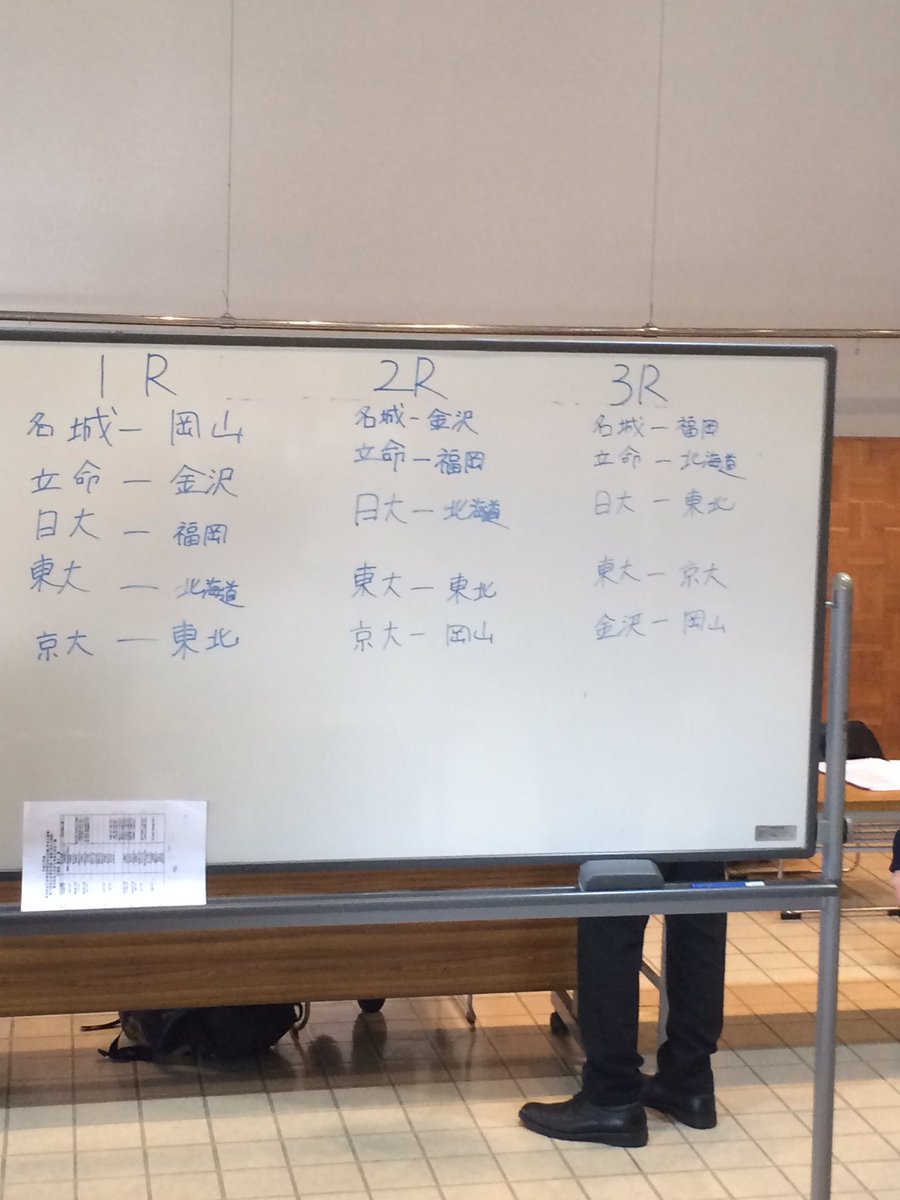 1R
名城－岡山
立命－金沢
日大－福岡
東大－北海道
京大－東北
2R
名城－金沢
立命－福岡
日大－北海道
東大－東北
京大－岡山
3R
名城－福岡
立命－北海道
日大－東北
東大－京大
金沢－岡山